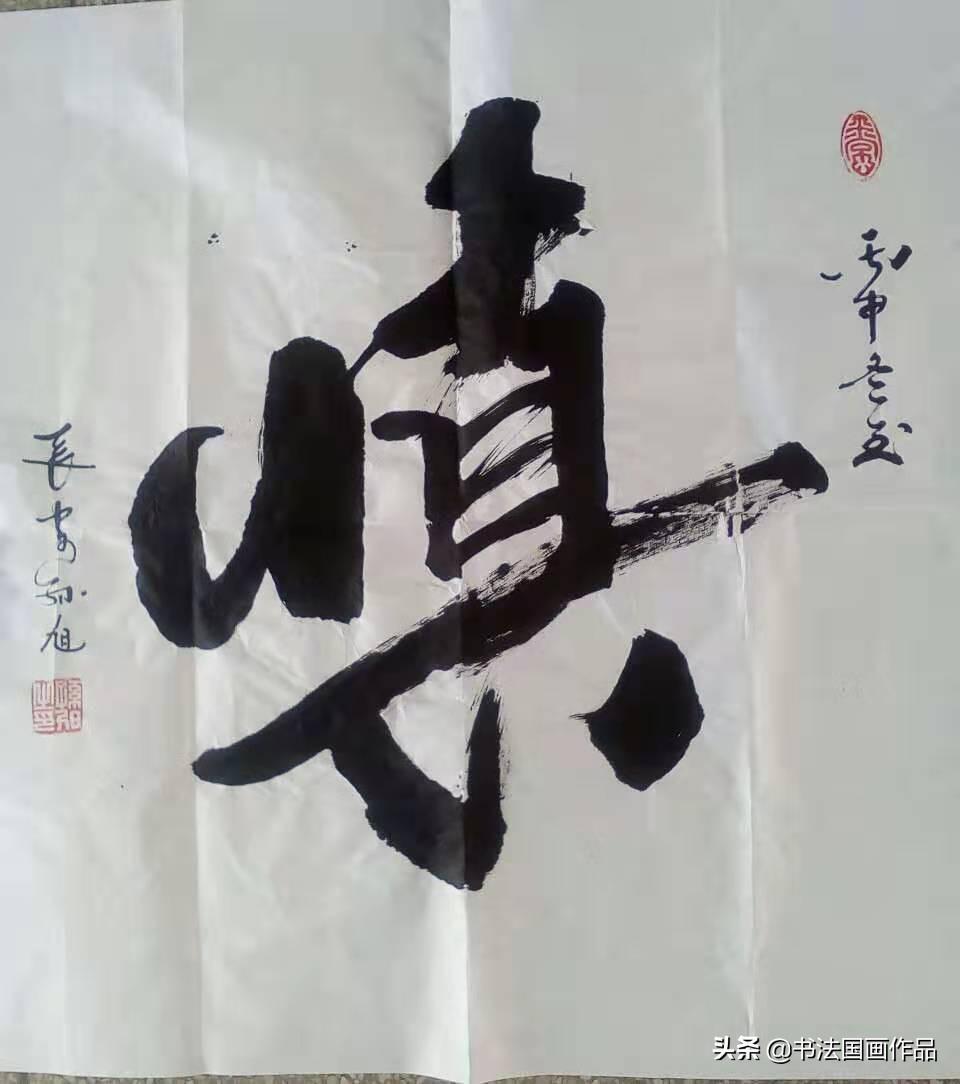 丙申冬至
慎
长安孙旭
头条 @书法国画作品